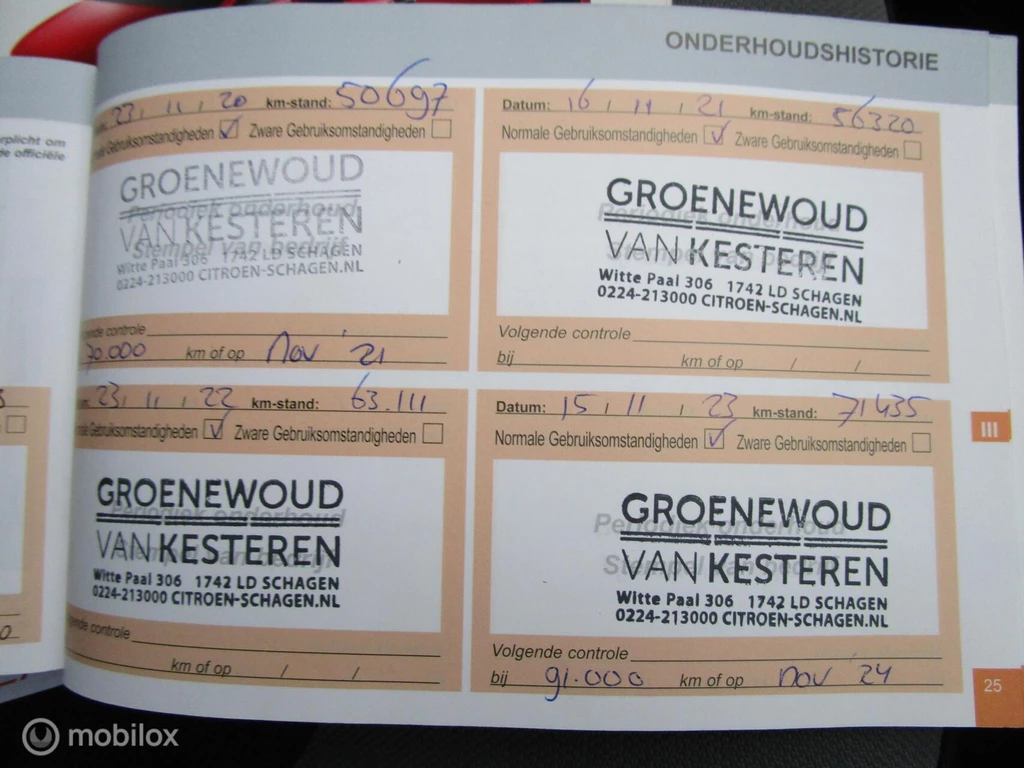 ONDERHOUDSHISTORIE
rplicht om
de officiële
23 / 11 / 20 km-stand: 50697
Gebruiksomstandigheden Zware Gebruiksomstandigheden
Periodiek onderhoud
Stempel van bedrijf
GROENEWOUD
VAN KESTEREN
Witte Paal 306 1742 LD SCHAGEN
0224-213000 CITROEN-SCHAGEN.NL
gende controle
70.000 km of op Nov '21
Datum: 16 / 11 / 21 km-stand: 56320
Normale Gebruiksomstandigheden Zware Gebruiksomstandigheden
Periodiek onderhoud
Stempel van bedrijf
GROENEWOUD
VAN KESTEREN
Witte Paal 306 1742 LD SCHAGEN
0224-213000 CITROEN-SCHAGEN.NL
Volgende controle
bij km of op / /
23 / 11 / 22 km-stand: 63.111
ale Gebruiksomstandigheden Zware Gebruiksomstandigheden
Periodiek onderhoud
Stempel van bedrijf
GROENEWOUD
VAN KESTEREN
Witte Paal 306 1742 LD SCHAGEN
0224-213000 CITROEN-SCHAGEN.NL
gende controle
km of op / /
Datum: 15 / 11 / 23 km-stand: 71435
Normale Gebruiksomstandigheden Zware Gebruiksomstandigheden
Periodiek onderhoud
Stempel van bedrijf
GROENEWOUD
VAN KESTEREN
Witte Paal 306 1742 LD SCHAGEN
0224-213000 CITROEN-SCHAGEN.NL
Volgende controle
bij 91.000 km of op nov 24
III
25
mobilox